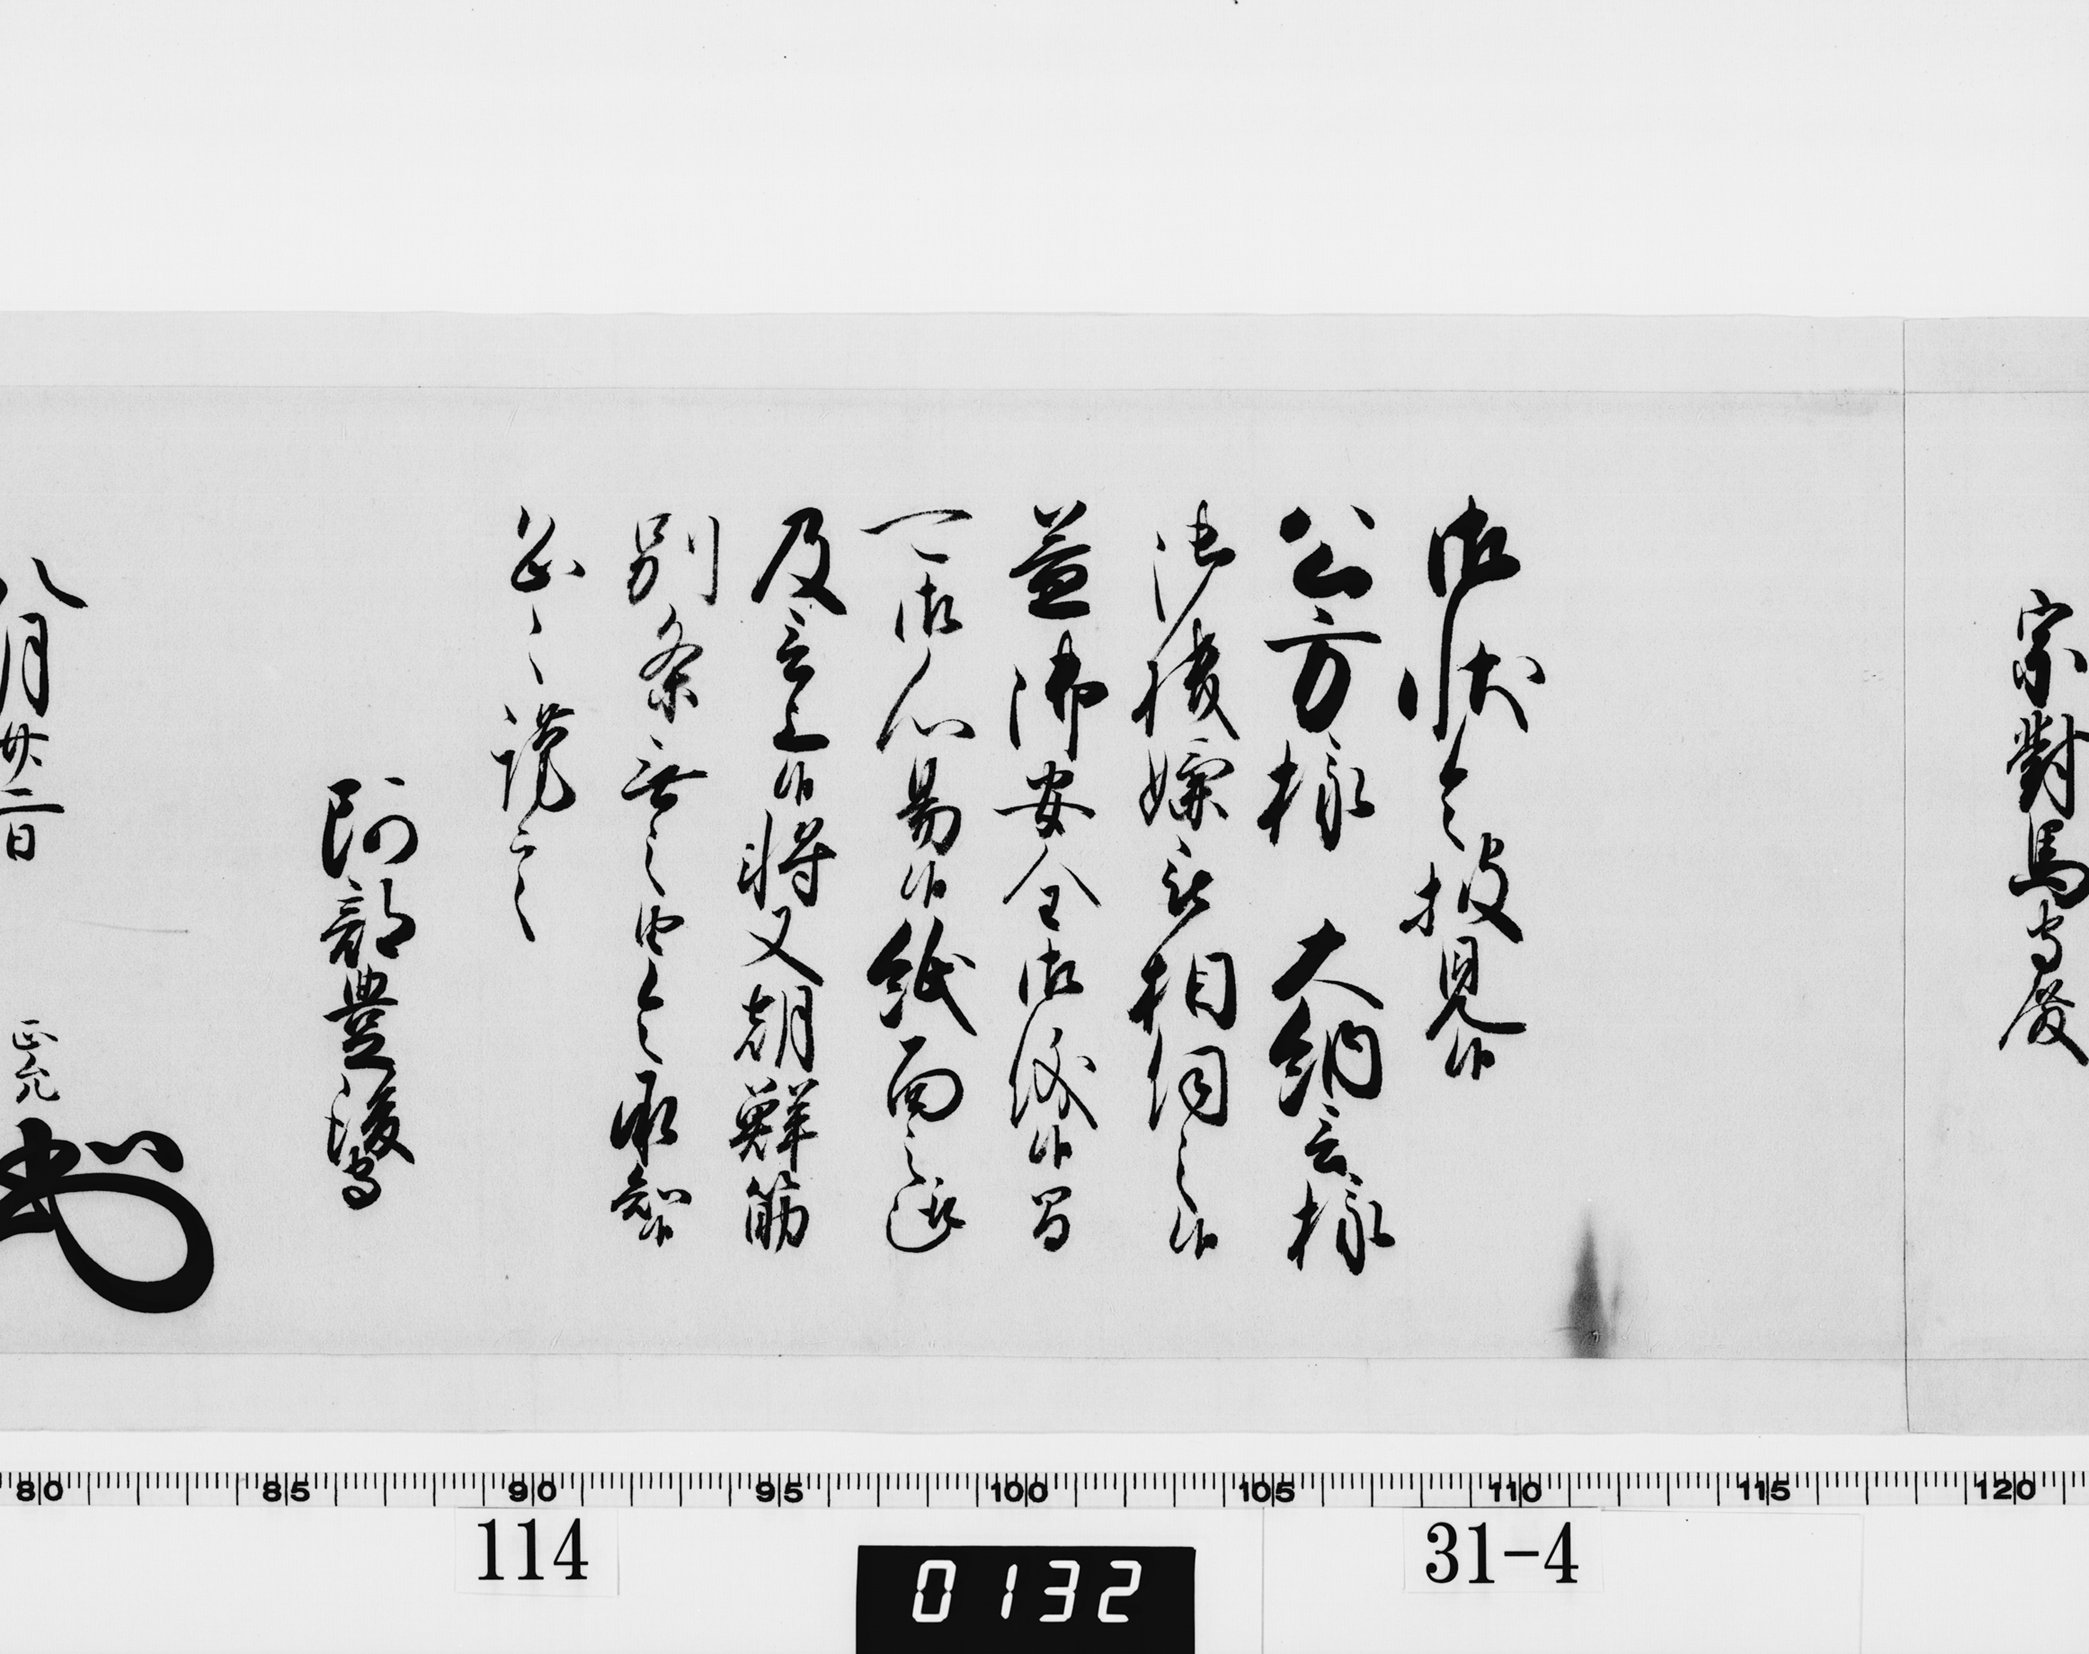 宗對馬守殿
御状令披見候
公方様　大納言様
御機嫌被相伺之候
益御安全御儀候間
可御心易候紙面之趣
及言上候将又朝鮮筋
別条無之由令承知候
恐々謹言
阿部豊後守
八月廿二日
正允
80 85 90 95 100 105 110 115 120
114
31-4
0132